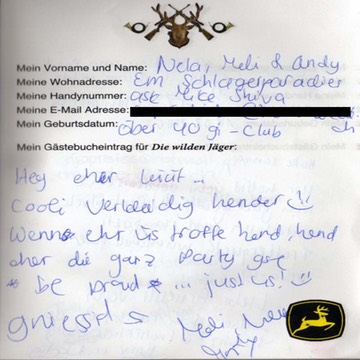 Mein Vorname und Name: Nela, Meli & Andy
Meine Wohnadresse: Em Schlagerparadies
Meine Handynummer: ase Mike Shiva
Meine E-Mail Adresse:
Mein Geburtsdatum: über 40gi-Club
Mein Gästebucheintrag für Die wilden Jäger:
Hey eher Leicit...
Cooli Verbaidig hender
Wenn ehr üs träffe hend, hend
eher die ganz Party gse
* be proud * ... just us!
gniessids Meli Nela
Andy